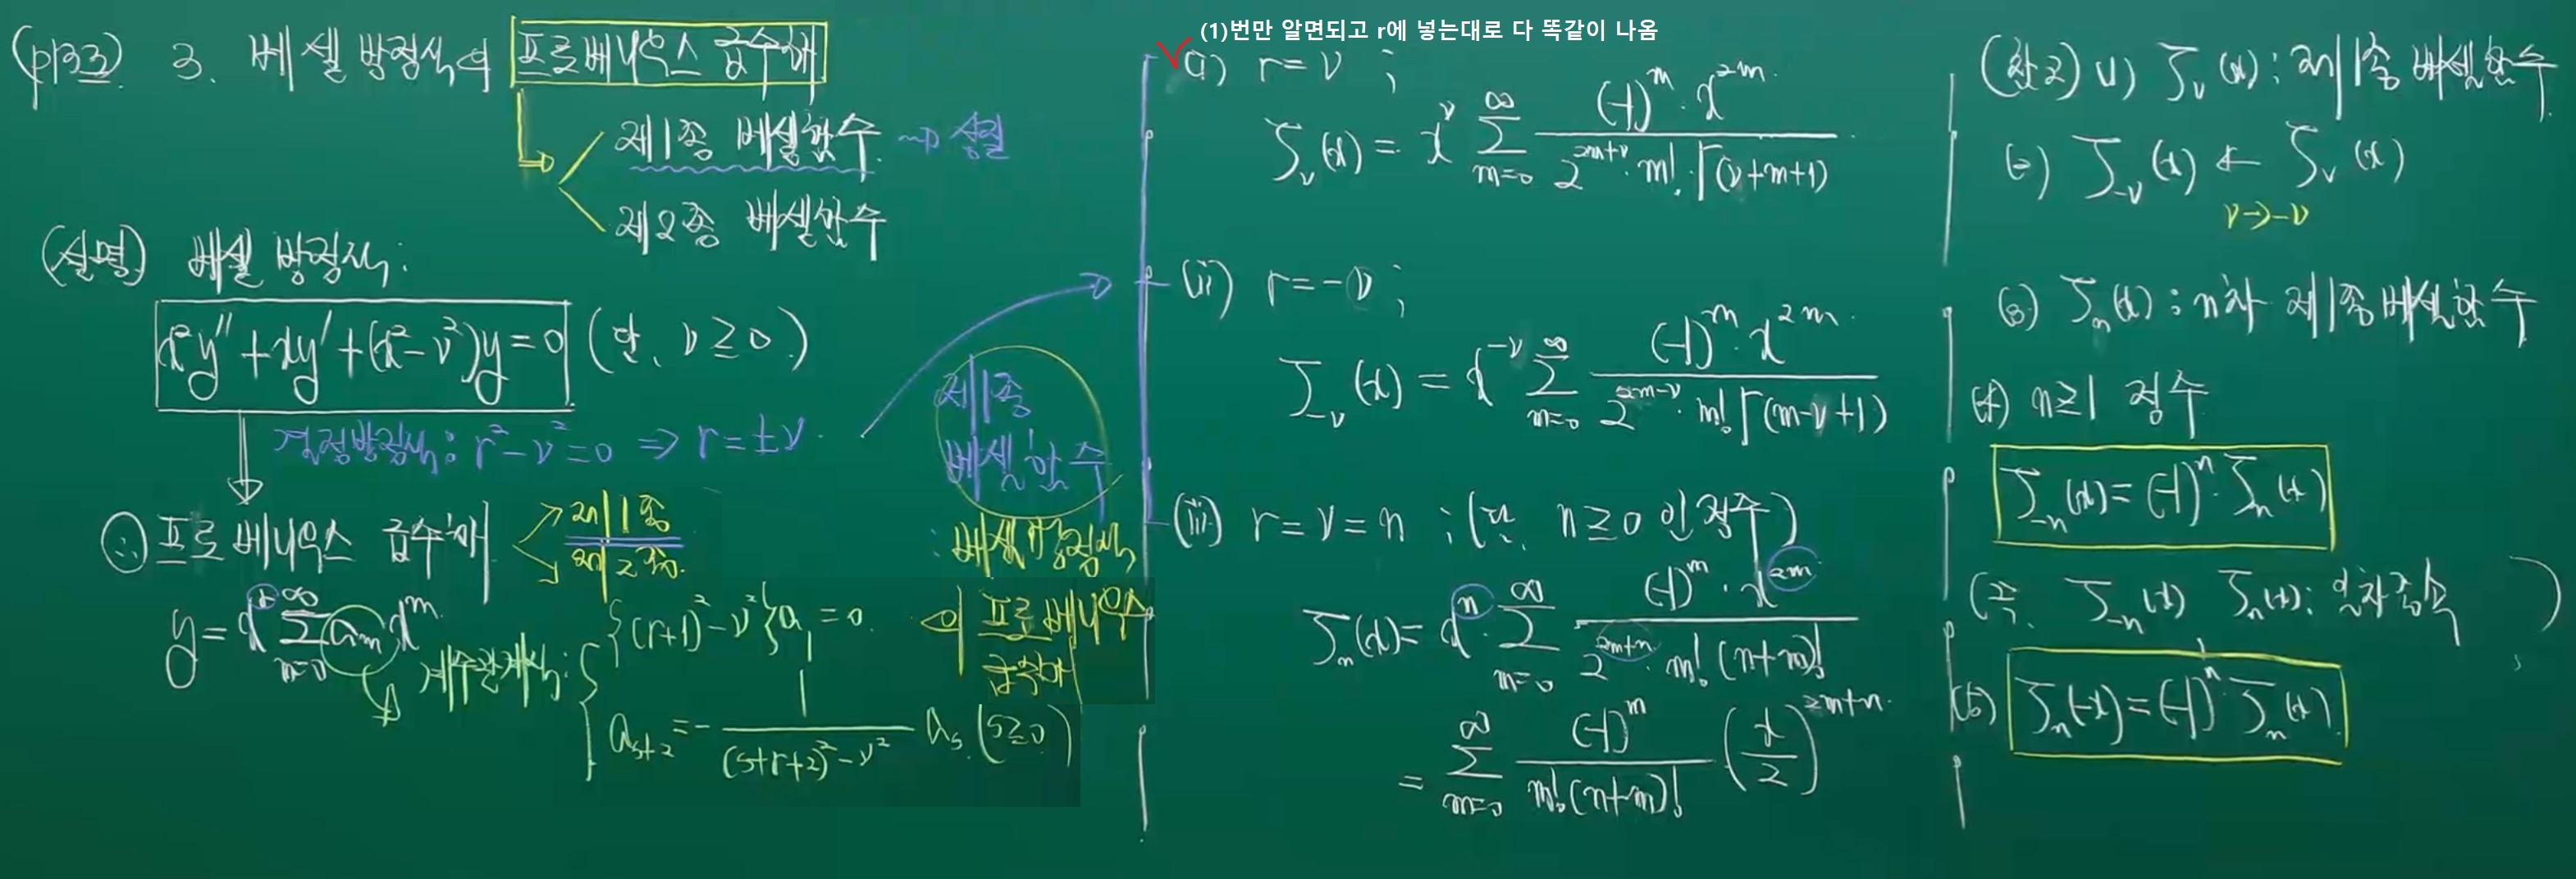 (p133) 3. 베셀 방정식의 프로베니우스 급수해
제1종 베셀함수 → 성질
제2종 베셀함수
(설명) 베셀 방정식:
x²y″+xy′+(x²-ν²)y=0 (단, ν≥0)
결정방정식: r²-ν²=0 ⇒ r=±ν
∴ 프로베니우스 급수해
제1종
제2종
y=x^r ∑_{m=0}^{∞} a_m x^m
계수관계식:
{(r+1)²-ν²}a₁=0
a_{s+2}=-\frac{1}{(s+r+2)²-ν²} a_s (s≥0)
제1종
베셀함수
: 베셀방정식
의 프로베니우스
급수해
(1)번만 알면되고 r에 넣는대로 다 똑같이 나옴
(i) r=ν ;
J_ν(x)=x^ν ∑_{m=0}^{∞} \frac{(-1)^m·x^{2m}}{2^{2m+ν}·m!·Γ(ν+m+1)}
(ii) r=-ν ;
J_{-ν}(x)=x^{-ν} ∑_{m=0}^{∞} \frac{(-1)^m·x^{2m}}{2^{2m-ν}·m!Γ(m-ν+1)}
(iii) r=ν=n ; (단, n≥0 인 정수)
J_n(x)=x^n·∑_{m=0}^{∞} \frac{(-1)^m·x^{2m}}{2^{2m+n}·m!(n+m)!}
=∑_{m=0}^{∞} \frac{(-1)^m}{m!(n+m)!} (\frac{x}{2})^{2m+n}
(참고) (1) J_ν(x): 제1종 베셀함수
(2) J_{-ν}(x) ← J_ν(x)
ν→-ν
(3) J_n(x): n차 제1종 베셀함수
(4) n≥1 정수
J_{-n}(x)=(-1)^n·J_n(x)
(즉, J_{-n}(x) J_n(x): 일차종속)
(5) J_n(-x)=(-1)^n J_n(x)